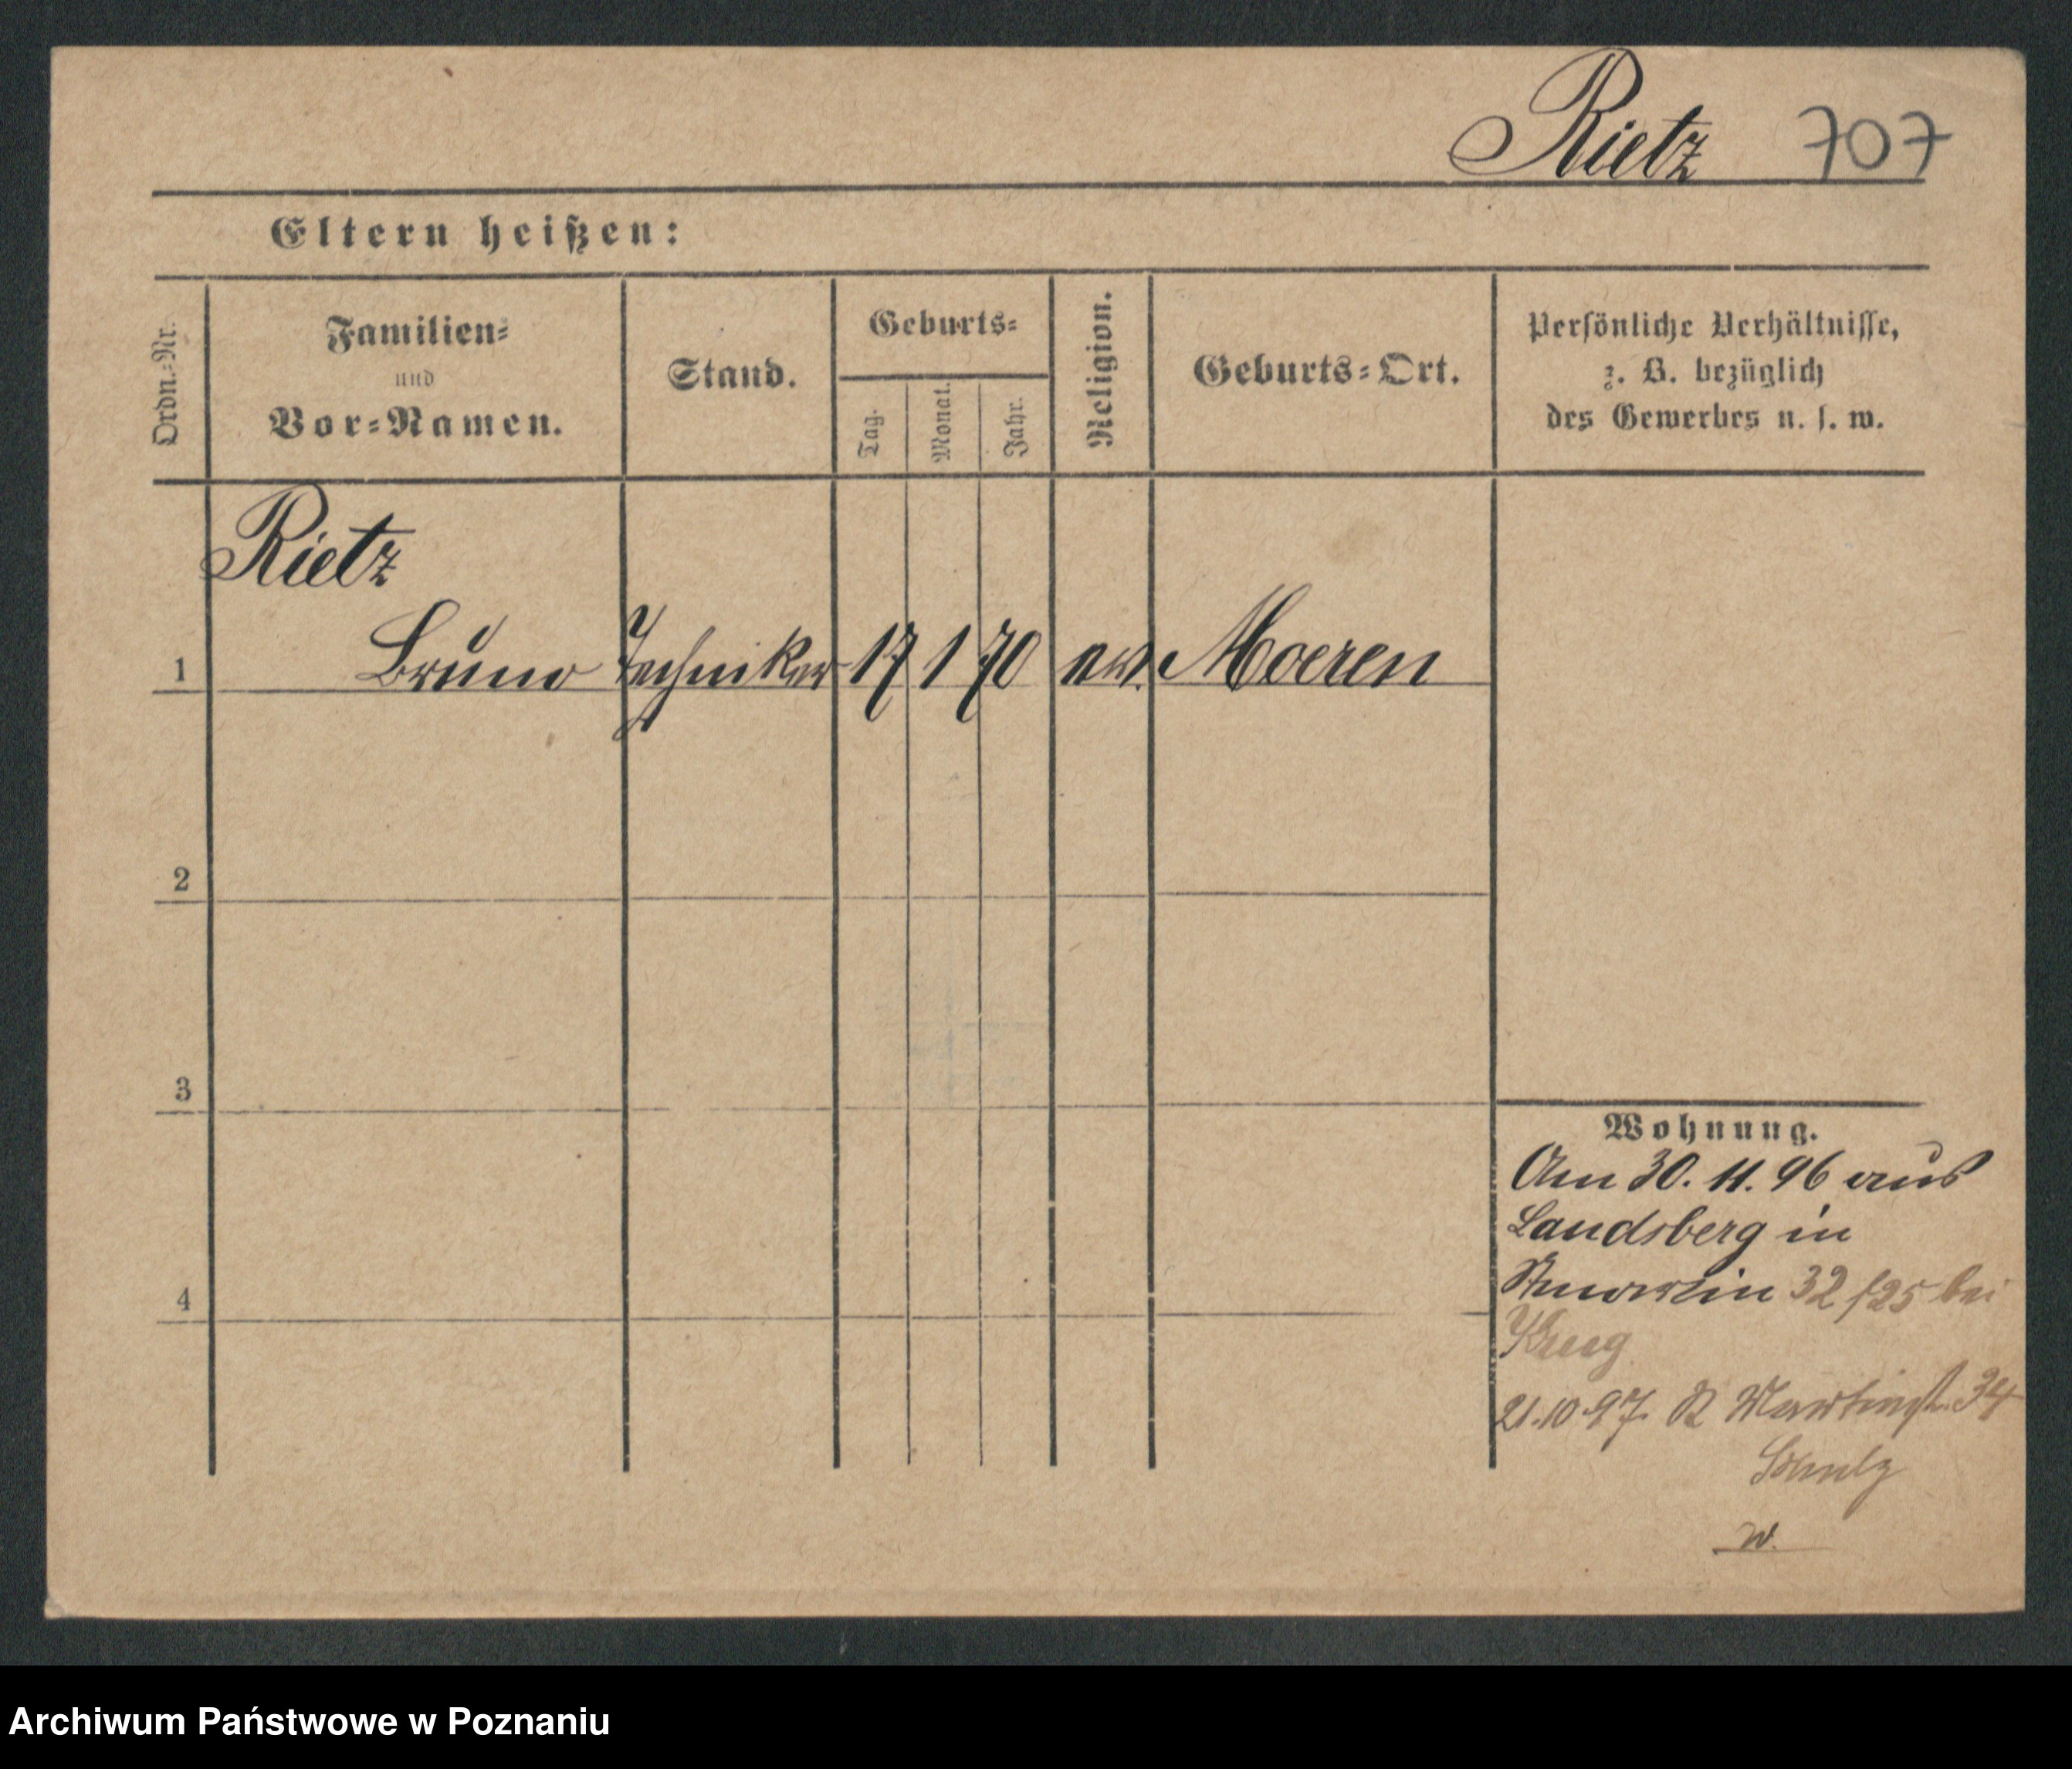 Rietz 707
Eltern heißen:
Ordn.-Nr.
Familien-
und
Vor-Namen.
Stand.
Geburts-
Tag.
Monat.
Jahr.
Religion.
Geburts-Ort.
Persönliche Verhältnisse,
z. B. bezüglich
des Gewerbes u. s. w.
Rietz
1 Bruno Techniker 17 1 70 ev. Moeren
2
3
4
Wohnung.
Am 30. 11. 96 aus
Landsberg in
32/25 bei
Krug
21.10.97. Martinstr. 34
Schulz
W.
Archiwum Państwowe w Poznaniu